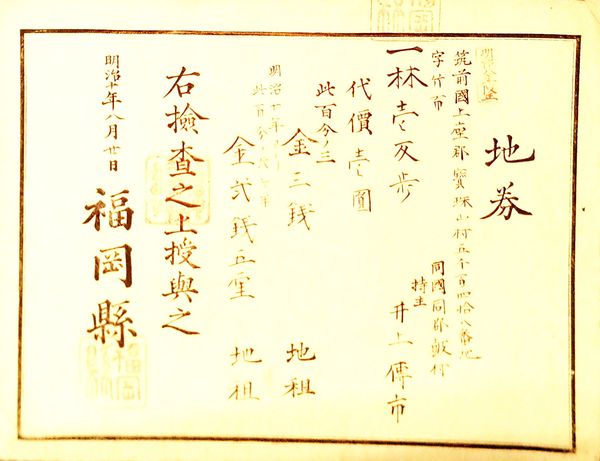 地券
筑前國上座郡寶珠山村五千百四拾八番地
字竹市
同國同郡
一林壱反歩
持主 井上傳市
代價壱圓
此百分ノ三
金三銭 地租
明治十年ヨリ
此百分ノ二ヶ半
金弐銭五厘 地租
右撿査之上授與之
明治十年八月廿日
福岡縣